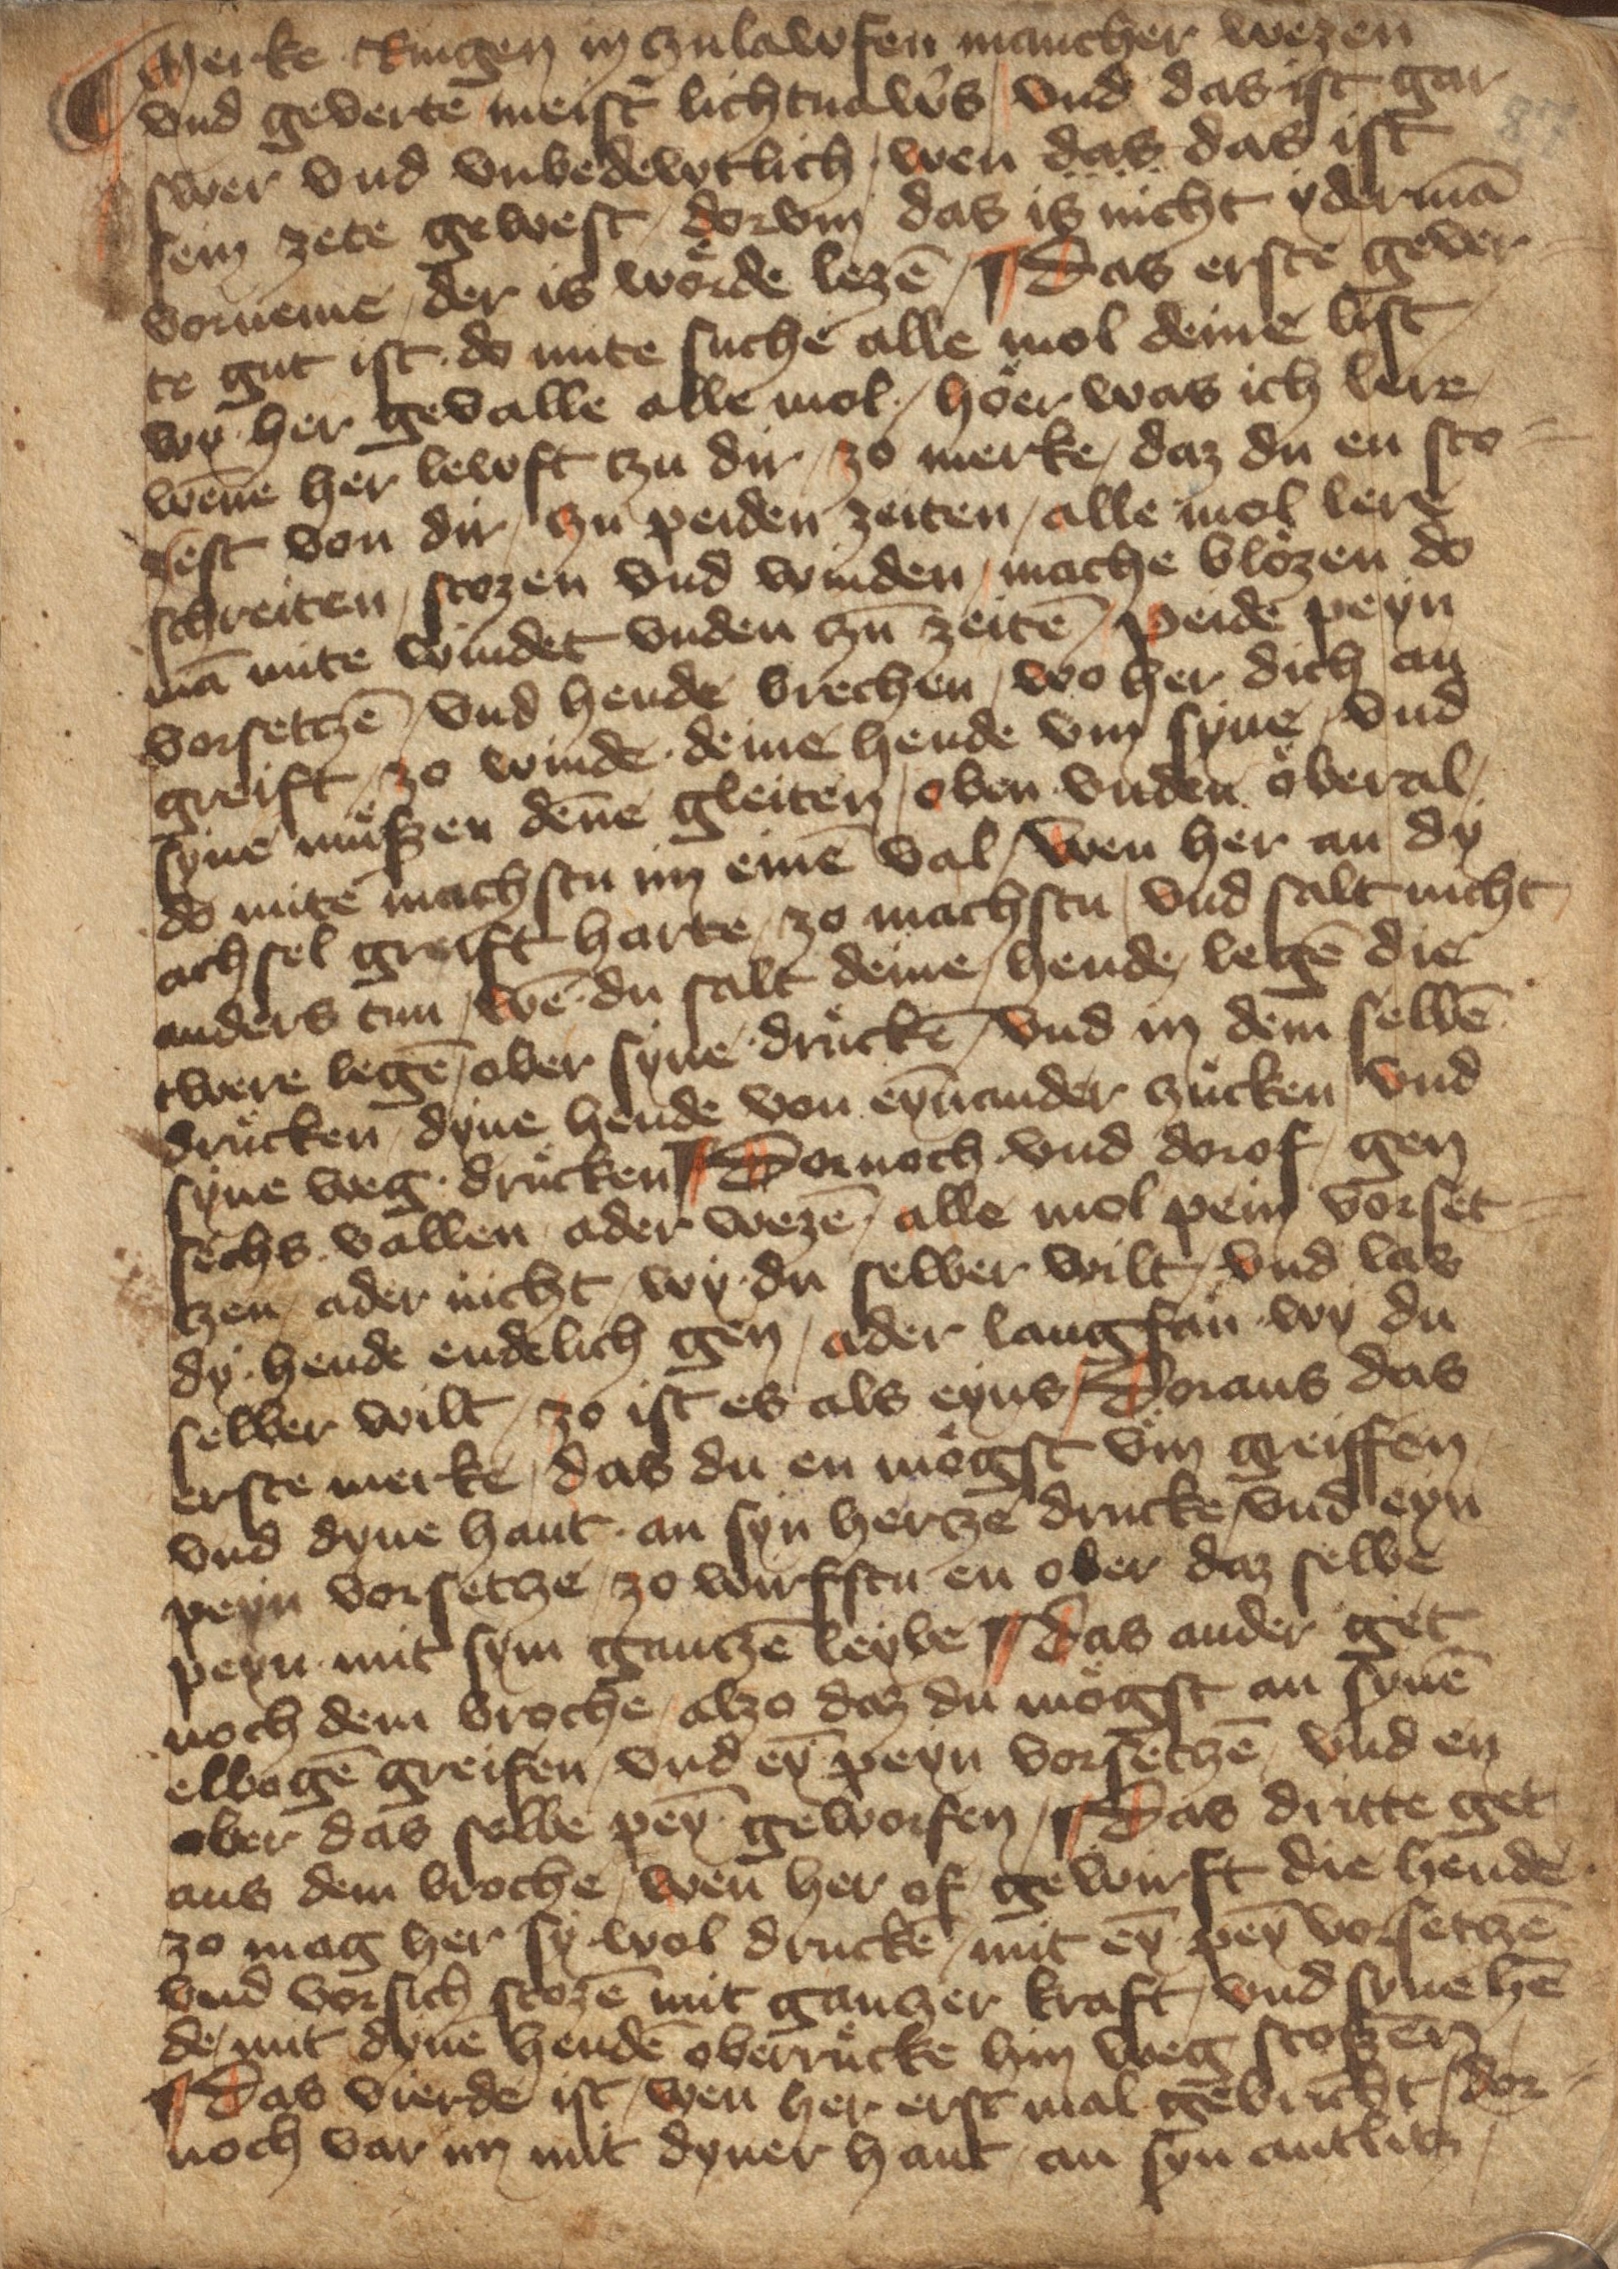 ¶ Merke Ringen in czulawfen mancher wezen
vnd geverte meist̄ lichtnaw̄s vnd das ist gar
swer vnd vnbedewtlich / wen das das ist
sein zete gewest / dorvm das is nicht ydermā
vorneme / der is wörde lezē / ¶ Das erste gever
te gut ist do mite suche alle mol deine list
wy her gevalle alle mol / höer was ich lere
wēne her lewft czu dir / zo merke / daz du en sto
sest von dir / czu peiden zeiten / alle mol lere
schreiten / stozen vnd winden / mache blözen do
mā mite windet vnden czū zeitē / peide peyn
vorsetczē / vnd hende brechen / wo her dich an
greift / zo winde deine hende vm syne / vnd
syne müszen dēne gleiten / oben vnden öberal /
do mite machstu im einē val / wen her an dy
achsel greift harte / zo machstu / vnd salt nicht
anders tun / wē du salt deine / hende / legē die
twere legē / ober syne drückē / vnd in dem selbē
drücken / dyne hende von eynander czücken / vnd
syne weg drücken ¶ Dornoch vnd dorof / gen
sechs vallen ader wezē / alle mol pein vorset
czen / ader nicht / wy du selber wilt / vnd las
dy hende endelich gen / ader langsam wy du
selber wilt / zo ist es als eyns / Doraus das
erste merke / das du en mögst vm greiffen /
vnd dyne hant an syn hercze drucke / vnd eyn
peyn vorsetcze / zo wirfstu en ober daz selbe
peyn mit sym ganczē leybe ¶ Das ander get
noch dem broche / alzo daz du mögst an synē
elbogē greifen / vnd eȳ peyn vorsetczē / vnd en
ober das selbe peȳ geworfen / ¶ Das dritte get
aus dem broche / wen her of gewirft die hende
zo mag her sy wol druckē / mit eȳ peȳ vorsetczē
vnd vorsich stozē mit ganczer kraft / vnd syne hē
de / mit dynē hendē oberrücke hin weg stoszen /
¶ Das vierde ist / wen her erst mal gebricht / dor
noch var im mit dyner hant / an syn antlitz /